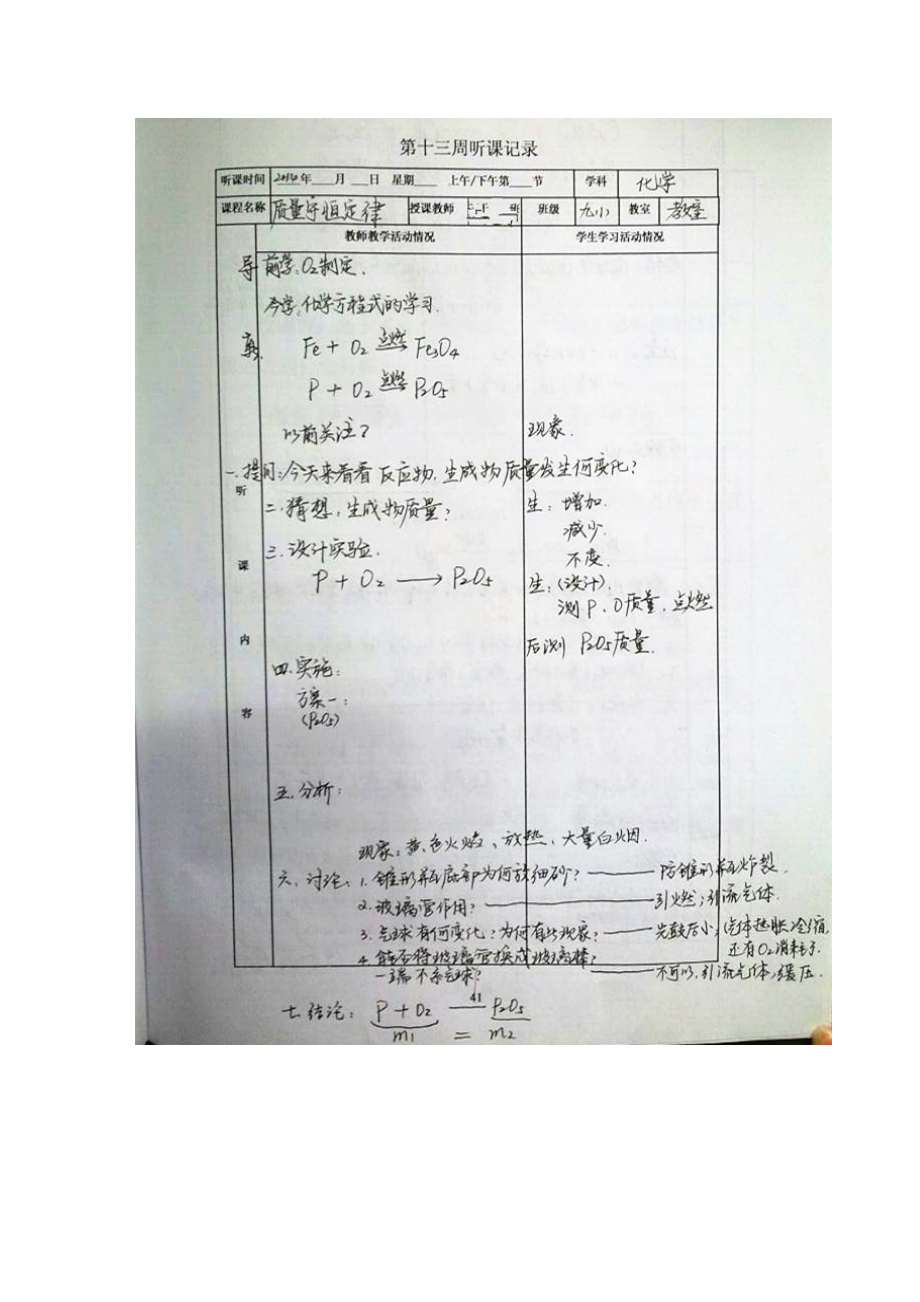 第十三周听课记录
听课时间 年___月___日 星期___ 上午/下午第___节 学科 化学
课程名称 质量守恒定律 授课教师 班级 教室 教室
教师教学活动情况 学生学习活动情况
导 前学:O₂制定.
今学:化学方程式的学习.
Fe + O₂ 点燃 Fe₃O₄
P + O₂ 点燃 P₂O₅
以前关注? 现象.
一.提问:今天来看看反应物.生成物质量发生何变化?
听
二.猜想,生成物质量? 生:增加.
减少.
三.设计实验. 不变.
课
P + O₂ ⟶ P₂O₅ 生:(设计).
测P、O质量.点燃
内 后测 P₂O₅质量.
四.实施:
方案一:
容 (P₂O₅)
五.分析:
现象:黄色火焰、放热、大量白烟.
六.讨论:1.锥形瓶底部为何放细砂?——防锥形瓶炸裂.
2.玻璃管作用?——引燃;引流气体.
3.气球有何变化?为何有此现象?——先鼓后小;(气体热胀冷缩,
还有O₂消耗了.
4.能否将玻璃管换成玻璃棒?
一端不系气球?——不可以,引流气体,缓压.
41
七.结论: P + O₂ — P₂O₅
m₁ = m₂